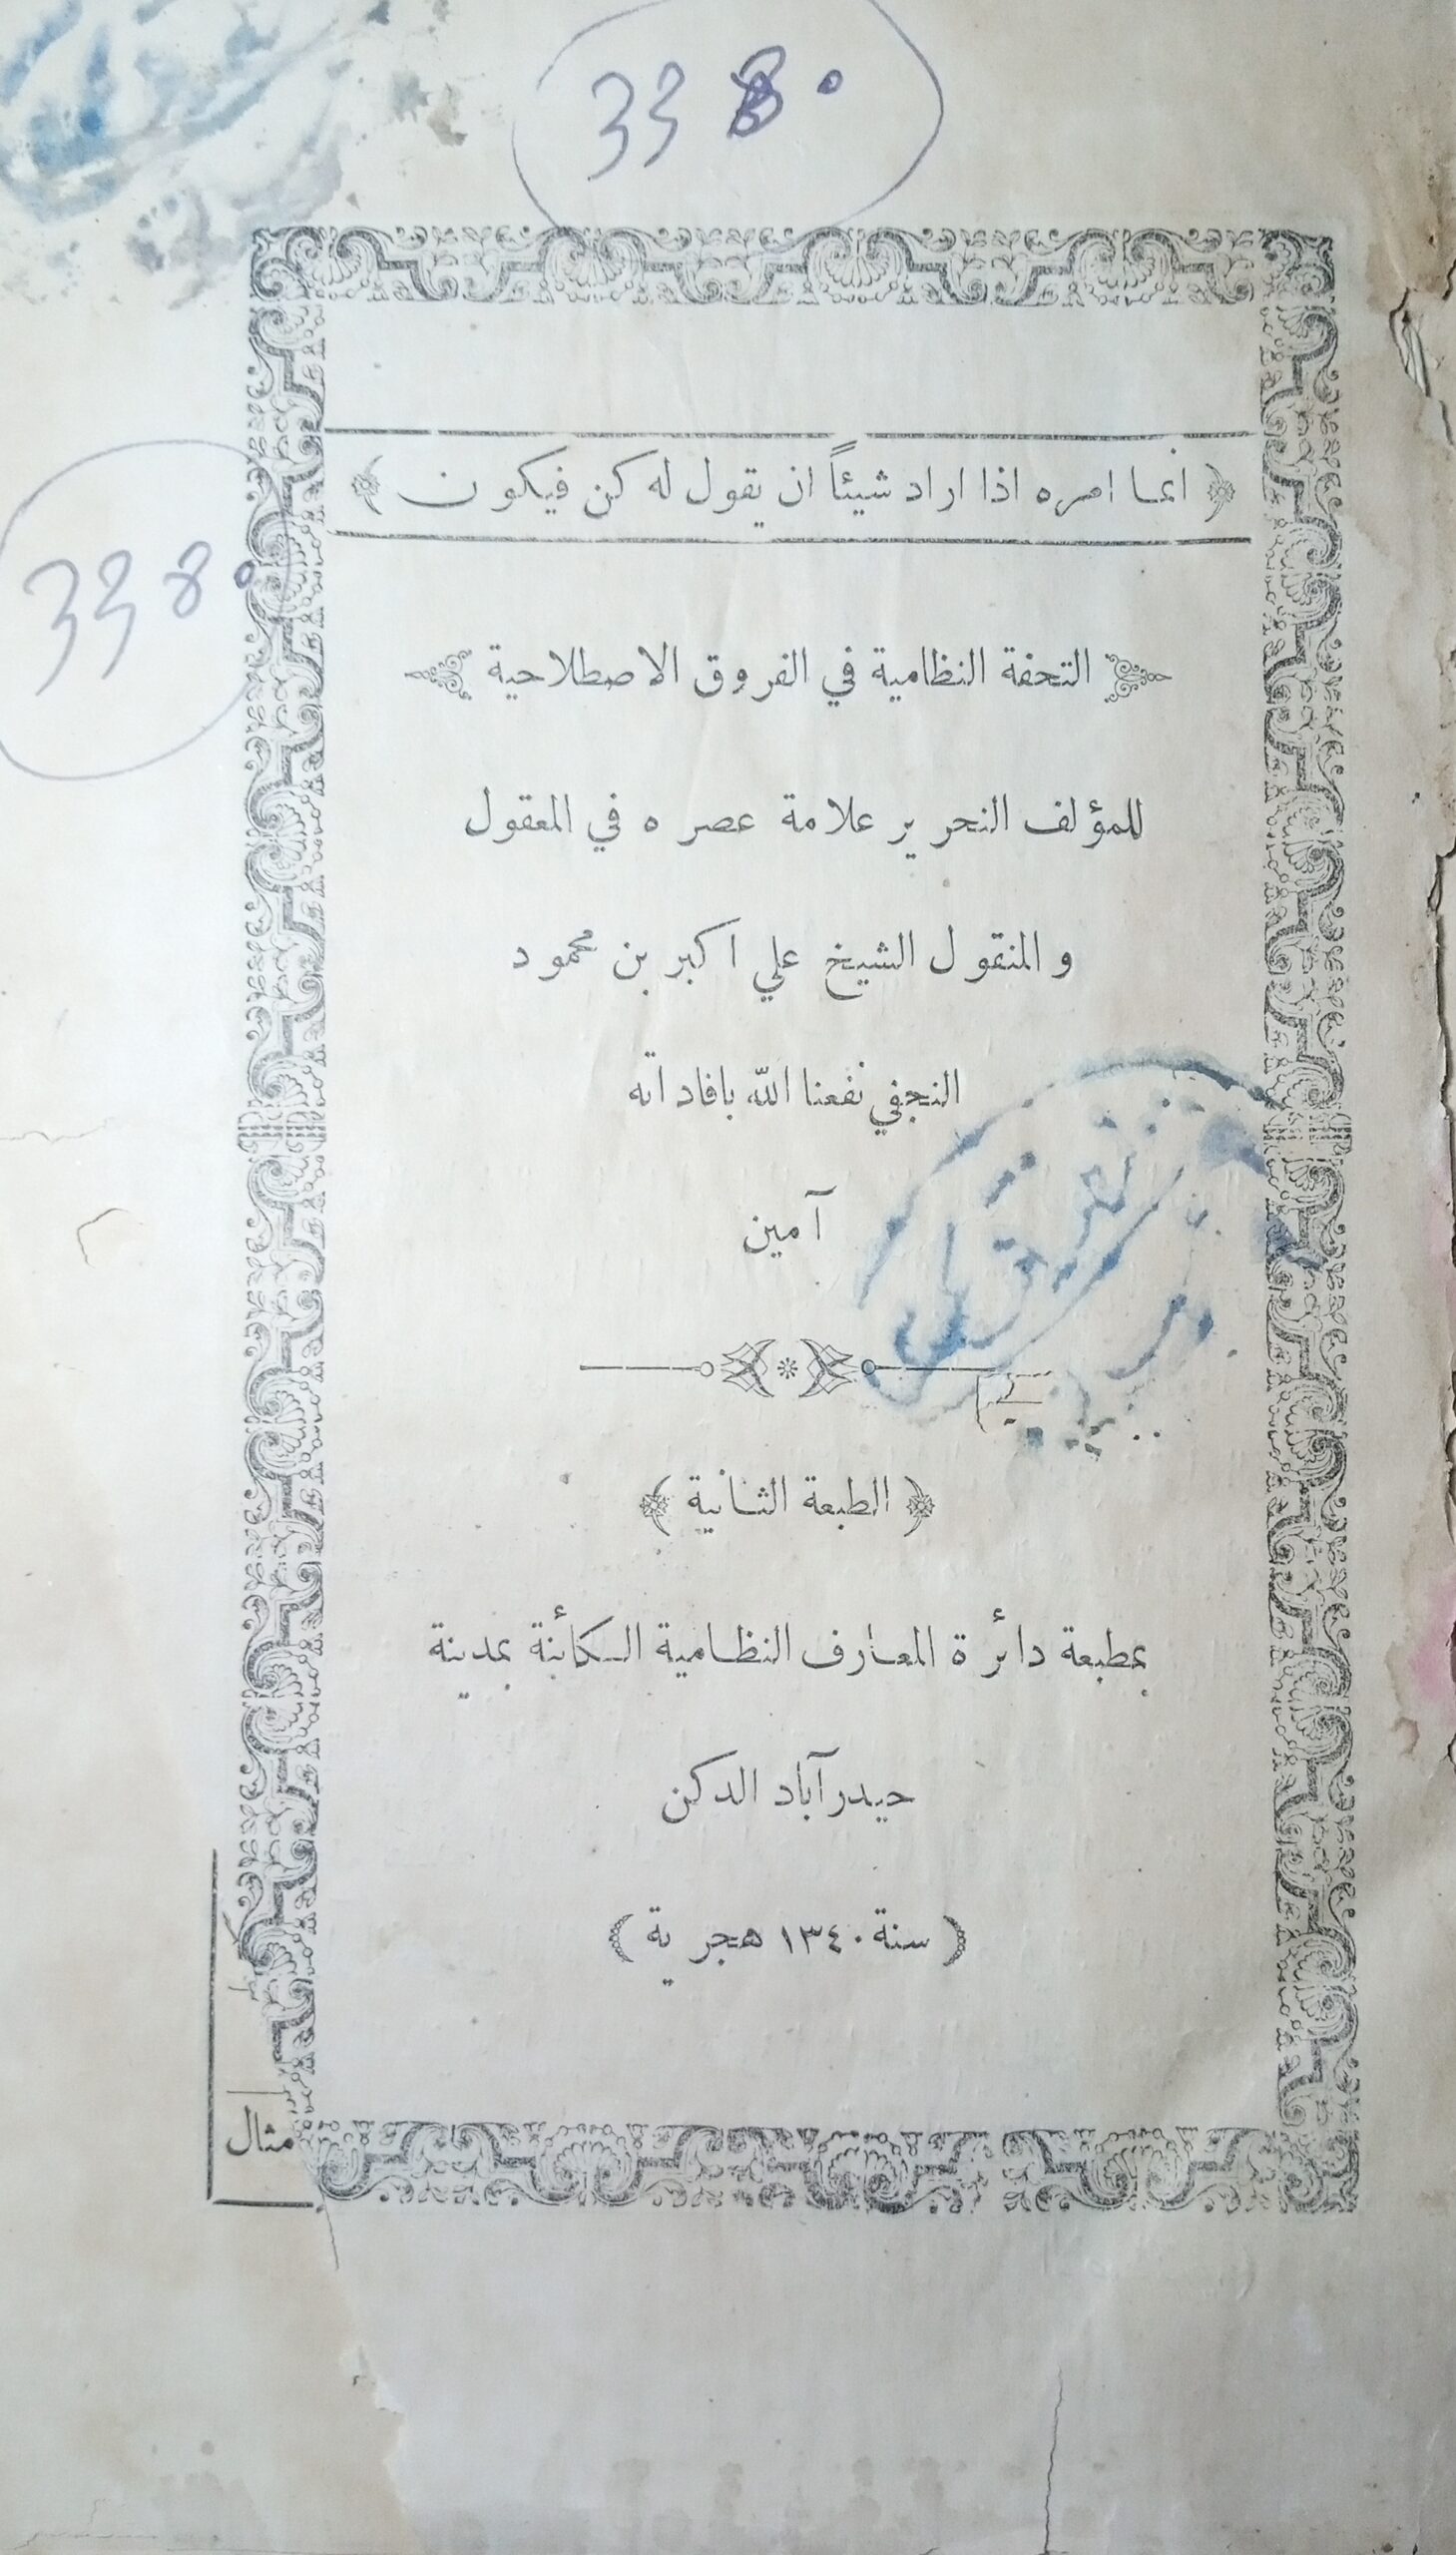 3380
﴿ انما امره اذا اراد شيئاً ان يقول له كن فيكون ﴾
3380
التحفة النظامية في الفروق الاصطلاحية
للمؤلف النحرير علامة عصره في المعقول
والمنقول الشيخ علي اكبر بن محمود
النجفي نفعنا الله بافاداته
آمين
﴿ الطبعة الثانية ﴾
بمطبعة دائرة المعارف النظامية الكائنة بمدينة
حيدرآباد الدكن
( سنة ١٣٤٠ هجرية )
مثال